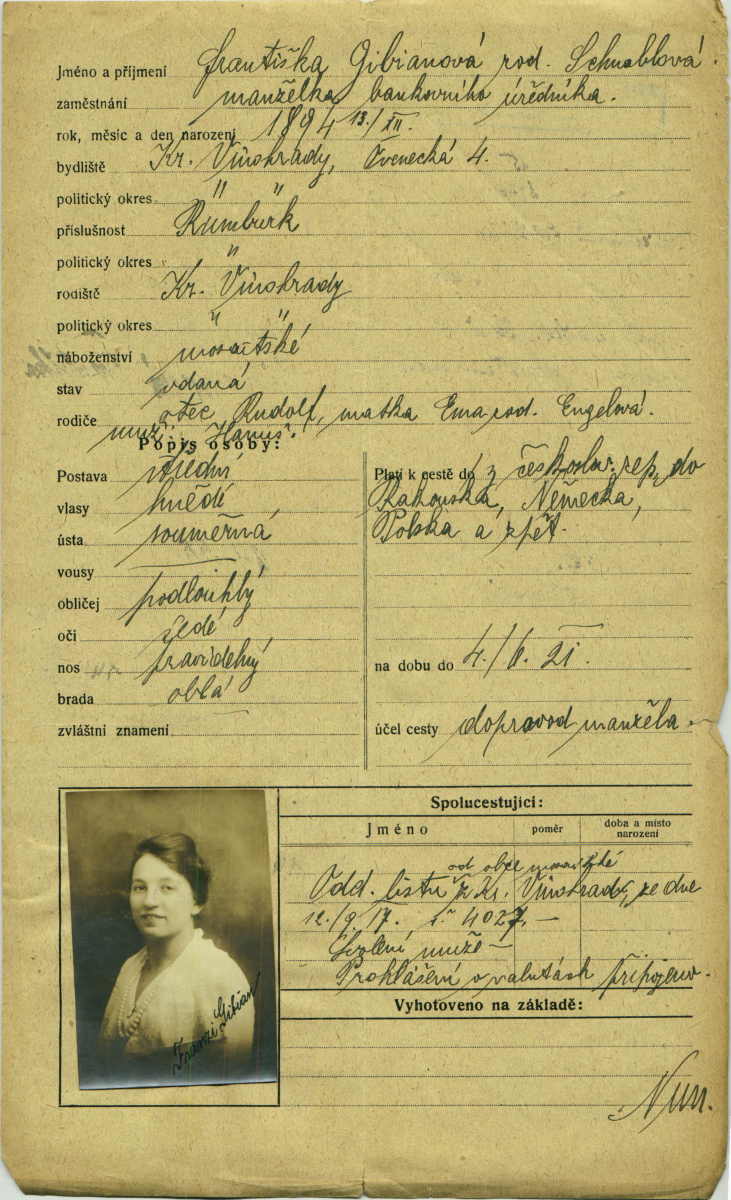 Jméno a příjmení Františka Gibianová rod. Schnablová.
zaměstnání manželka bankovního úředníka.
rok, měsíc a den narození 1894 13./XII.
bydliště Kr. Vinohrady, Ovenecká 4.
politický okres " "
příslušnost Rumburk
politický okres "
rodiště Kr. Vinohrady
politický okres " "
náboženství mosaitské
stav vdaná
rodiče otec Rudolf, matka Ema rod. Engelová.
muž: "Hanuš".
Popis osoby:
Postava střední
vlasy hnědé
ústa souměrná
vousy —
obličej podlouhlý
oči šedé
nos pravidelný
brada oblá
zvláštní znamení —
Platí k cestě do z českoslov. rep. do
Rakouska, Německa,
Polska a zpět.
na dobu do 4./6. 21.
účel cesty doprovod manžela.
Spolucestující:
Jméno poměr doba a místo narození
od obce mosaitské
Odd. listu z Kr. Vinohrad, ze dne
12./9. 17. č. 4027, —
Svolení muže —
Prohlášení o valutách připojeno.
Vyhotoveno na základě:
Franzi Gibian